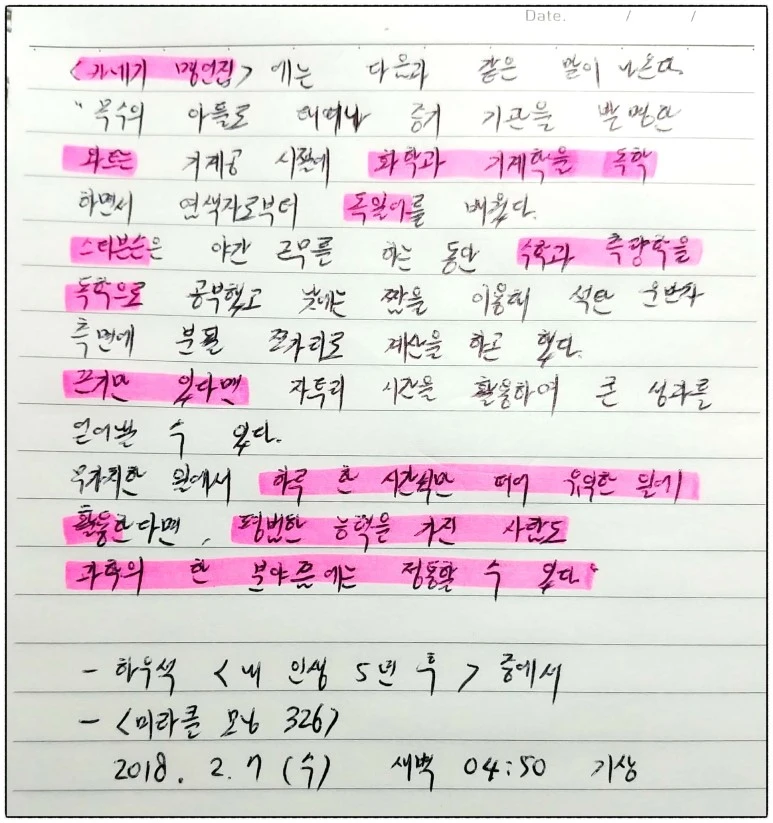 Date. / /
<카네기 명언집> 에는 다음과 같은 말이 나온다.
"목수의 아들로 태어나 증기 기관을 발명한
와트는 기계공 시절에 화학과 기계학을 독학
하면서 염색자로부터 독일어를 배웠다.
스티븐슨은 야간 근무를 하는 동안 수학과 측량학을
독학으로 공부했고 낮에는 짬을 이용해 석탄 운반차
측면에 분필 쪼가리로 계산을 하곤 했다.
끈기만 있다면 자투리 시간을 활용하여 큰 성과를
얻어낼 수 있다.
무가치한 일에서 하루 한 시간씩만 떼어 유익한 일에
활용한다면, 평범한 능력을 가진 사람도
과학의 한 분야쯤에는 정통할 수 있다"
- 하우석 <내 인생 5년 후> 중에서
- <미라클 모닝 326>
2018. 2. 7 (수) 새벽 04:50 기상